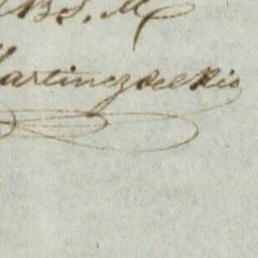 B. S. M.
Martinez del Rio